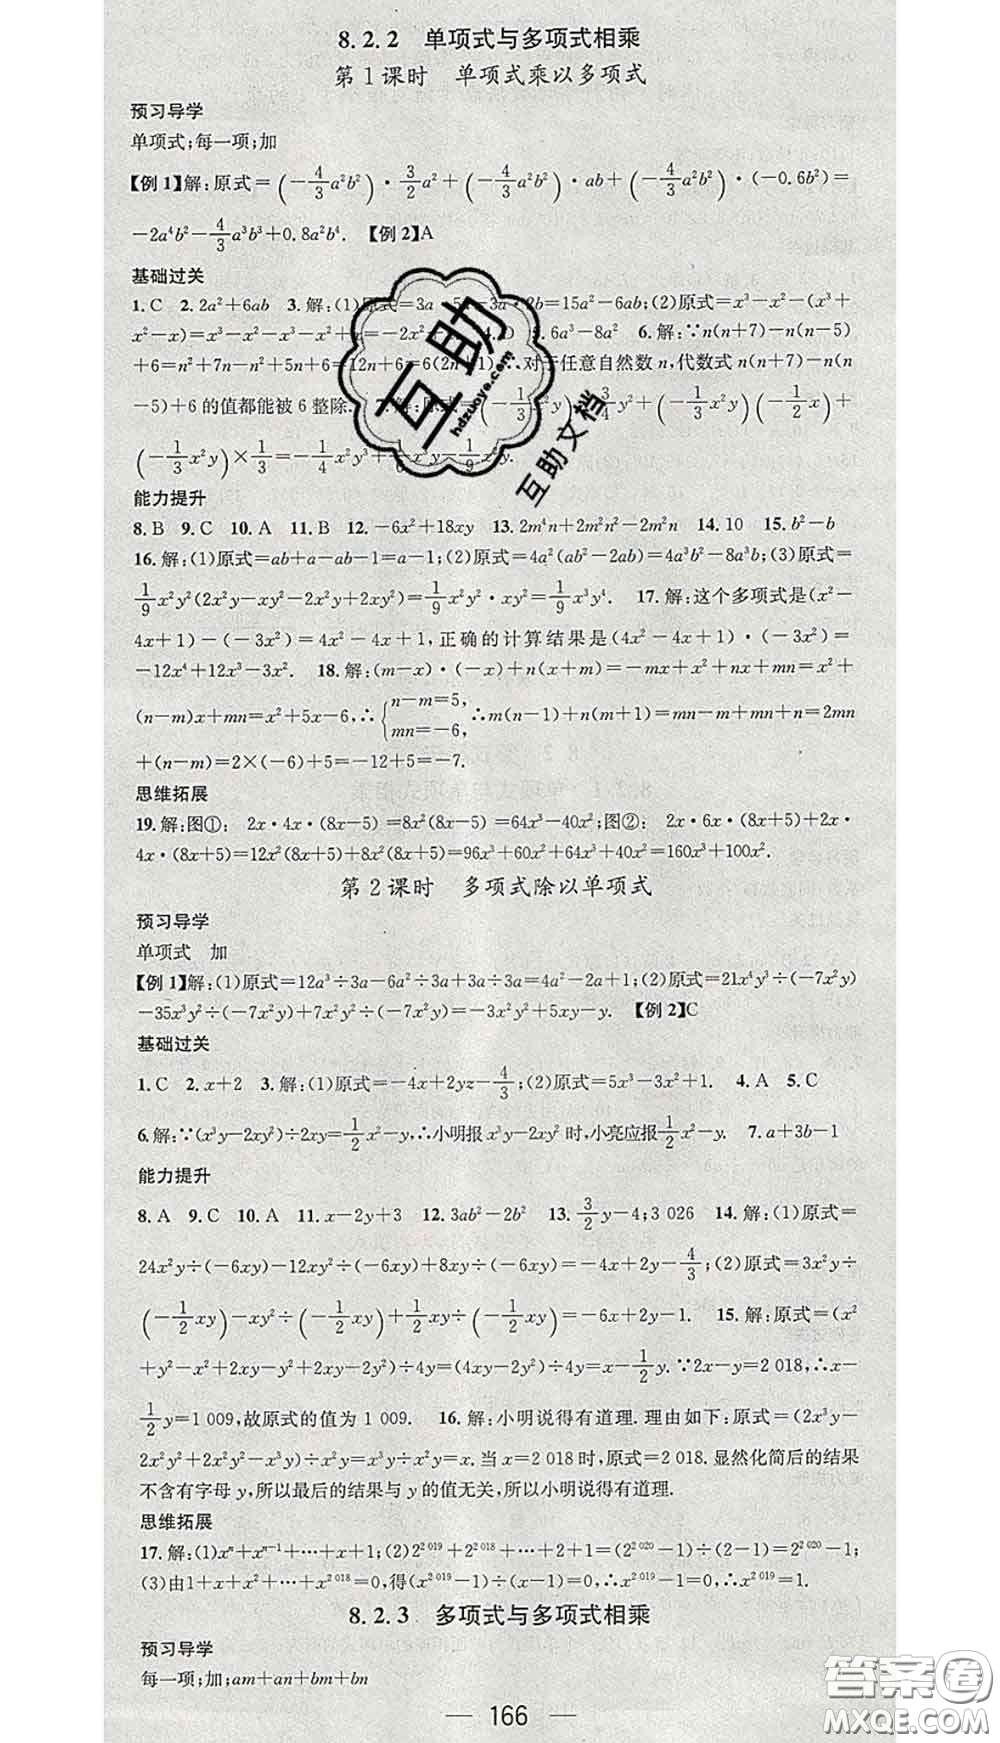 8.2.2 单项式与多项式相乘
第1课时 单项式乘以多项式
预习导学
单项式;每一项;加
【例1】解:原式=(-4/3a²b²)·3/2a²+(-4/3a²b²)·ab+(-4/3a²b²)·(-0.6b²)=
-2a⁴b²-4/3a³b³+0.8a²b⁴. 【例2】A
基础过关
1.C 2.2a²+6ab 3.解:(1)原式=3a·5a-3a·2b=15a²-6ab;(2)原式=x³-x²-(x³+
x²-x)=x³-x²-x³-x²+x=-2x²+x. 4.D 5.6a³-8a² 6.解:∵n(n+7)-n(n-5)
+6=n²+7n-n²+5n+6=12n+6=6(2n+1),∴对于任意自然数n,代数式n(n+7)-n(n
-5)+6的值都能被6整除. 7.解:原式=(-1/3x²y)·3/4y²+(-1/3x²y)(-1/2x)+
(-1/3x²y)×1/3=-1/4x²y³+1/6x³y-1/9x²y.
能力提升
8.B 9.C 10.A 11.B 12.-6x²+18xy 13.2m⁴n+2m²n²-2m²n 14.10 15.b²-b
16.解:(1)原式=ab+a-ab-1=a-1;(2)原式=4a²(ab²-2ab)=4a³b²-8a³b;(3)原式=
1/9x²y²(2x²y-xy²-2x²y+2xy²)=1/9x²y²·xy²=1/9x³y⁴. 17.解:这个多项式是(x²-
4x+1)-(-3x²)=4x²-4x+1,正确的计算结果是(4x²-4x+1)·(-3x²)=
-12x⁴+12x³-3x². 18.解:(m-x)·(-x)+n(x+m)=-mx+x²+nx+mn=x²+
(n-m)x+mn=x²+5x-6,∴{n-m=5, mn=-6 ∴m(n-1)+n(m+1)=mn-m+mn+n=2mn
+(n-m)=2×(-6)+5=-12+5=-7.
思维拓展
19.解:图①: 2x·4x·(8x-5)=8x²(8x-5)=64x³-40x²;图②: 2x·6x·(8x+5)+2x·
4x·(8x+5)=12x²(8x+5)+8x²(8x+5)=96x³+60x²+64x³+40x²=160x³+100x².
第2课时 多项式除以单项式
预习导学
单项式 加
【例1】解:(1)原式=12a³÷3a-6a²÷3a+3a÷3a=4a²-2a+1;(2)原式=21x⁴y³÷(-7x²y)
-35x³y²÷(-7x²y)+7x²y²÷(-7x²y)=-3x²y²+5xy-y. 【例2】C
基础过关
1.C 2.x+2 3.解:(1)原式=-4x+2yz-4/3;(2)原式=5x³-3x²+1. 4.A 5.C
6.解:∵(x³y-2xy²)÷2xy=1/2x²-y,∴小明报x³y-2xy²时,小亮应报1/2x²-y. 7.a+3b-1
能力提升
8.A 9.C 10.A 11.x-2y+3 12.3ab²-2b² 13.3/2y-4;3 026 14.解:(1)原式=
24x²y÷(-6xy)-12xy²÷(-6xy)+8xy÷(-6xy)=-4x+2y-4/3;(2)原式=3x²y÷
(-1/2xy)-xy²÷(-1/2xy)+1/2xy÷(-1/2xy)=-6x+2y-1. 15.解:原式=(x²
+y²-x²+2xy-y²+2xy-2y²)÷4y=(4xy-2y²)÷4y=x-1/2y.∵2x-y=2 018,∴x-
1/2y=1 009,故原式的值为1 009. 16.解:小明说得有道理.理由如下:原式=(2x³y-
2x²y²+2x²y²-x³y)÷x²y=x³y÷x²y=x.当x=2 018时,原式=2 018.显然化简后的结果
不含有字母y,所以最后的结果与y的值无关,所以小明说得有道理.
思维拓展
17.解:(1)xⁿ+xⁿ⁻¹+…+x+1;(2)2^2 019+2^2 018+…+2+1=(2^2 020-1)÷(2-1)=2^2 020-1;
(3)由1+x+x²+…+x^2 018=0,得(x^2 019-1)÷(x-1)=0,∴x^2 019-1=0,∴x^2 019=1.
8.2.3 多项式与多项式相乘
预习导学
每一项;加;am+an+bm+bn
166
互助
hdzuoye.com
互助文档
答案圈
MXQE.COM